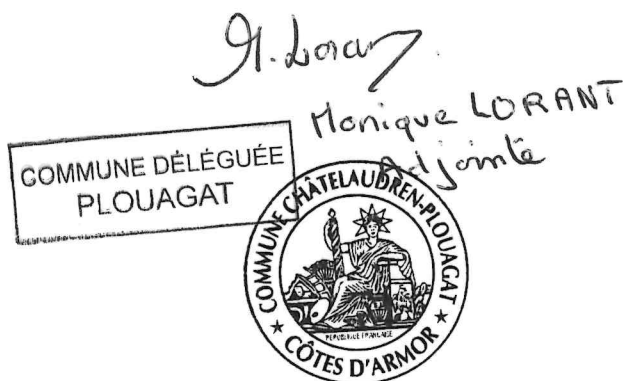 M. Lorant
Monique LORANT
Adjointe
COMMUNE DÉLÉGUÉE
PLOUAGAT
COMMUNE CHÂTELAUDREN-PLOUAGAT
RÉPUBLIQUE FRANÇAISE
★ CÔTES D'ARMOR ★